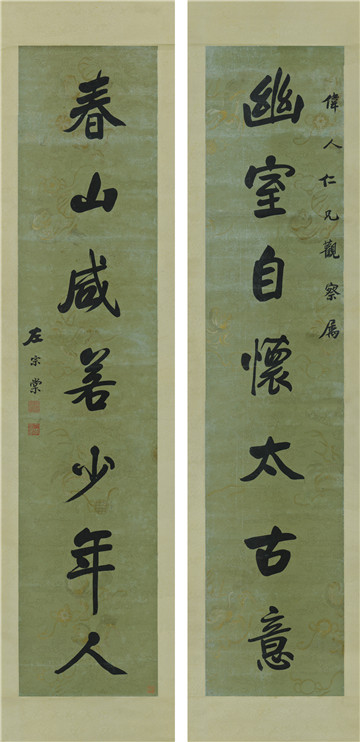 偉人仁兄觀察属
幽室自懷太古意
春山咸若少年人
左宗棠